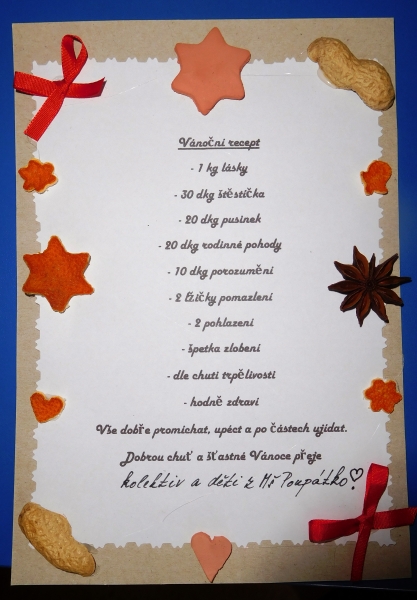 Vánoční recept
- 1 kg lásky
- 30 dkg štěstíčka
- 20 dkg pusinek
- 20 dkg rodinné pohody
- 10 dkg porozumění
- 2 lžičky pomazlení
- 2 pohlazení
- špetka zlobení
- dle chuti trpělivosti
- hodně zdraví
Vše dobře promíchat, upéct a po částech ujídat.
Dobrou chuť a šťastné Vánoce přeje
kolektiv a děti z MŠ Poupátko!